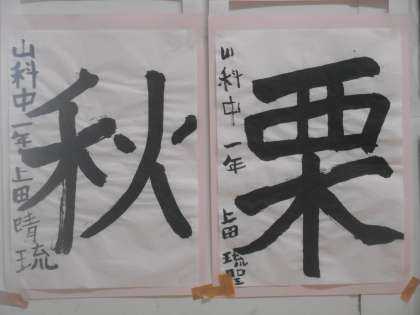 秋
山科中 一年 上田 晴琉
栗
山科中 一年 上田 琉聖